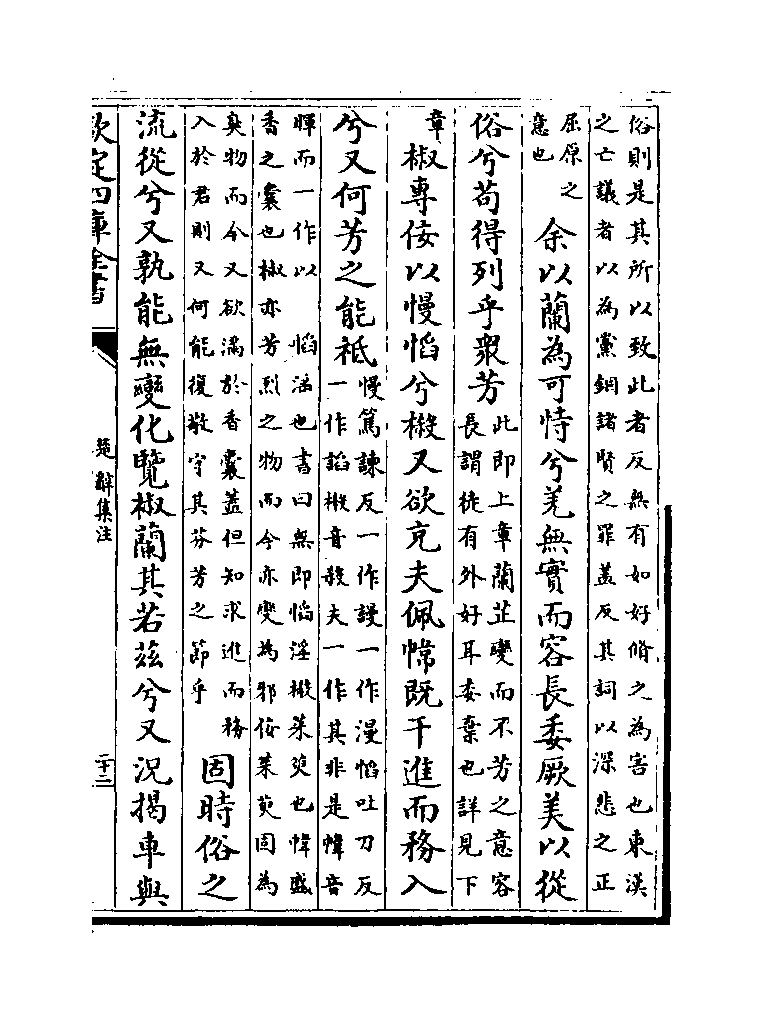 俗則是其所以致此者反無有如好脩之為害也東漢
之亡議者以為黨錮諸賢之罪蓋反其詞以深悲之正
屈原之
意也
余以蘭為可恃兮羌無實而容長委厥美以從
俗兮苟得列乎衆芳
此即上章蘭芷變而不芳之意容
長謂徒有外好耳委棄也詳見下
章
椒專佞以慢慆兮樧又欲充夫佩幃既干進而務入
兮又何芳之能祗
慢篤諫反一作謾一作漫慆吐刀反
一作謟樧音殺夫一作其非是幃音
暉而一作以
慆滔也書曰無即慆淫樧茱萸也幃盛
香之囊也椒亦芳烈之物而今亦變為邪佞茱萸固為
臭物而今又欲滿於香囊蓋但知求進而務
入於君則又何能復敬守其芬芳之節乎
固時俗之
流從兮又孰能無變化覽椒蘭其若茲兮又況揭車與
欽定四庫全書
楚辭集注
二十二